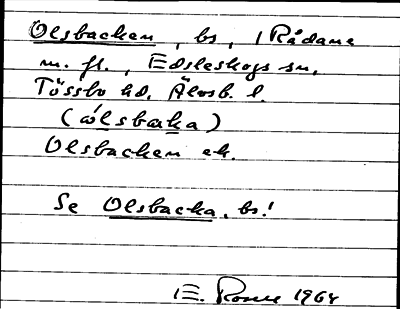 Olsbacken, bs, i Rådane
m. fl., Edsleskogs sn,
Tössbo hd, Älvsb. l.
(ólsbaka)
Olsbacken ek.
Se Olsbacka, bs!
E. 1964